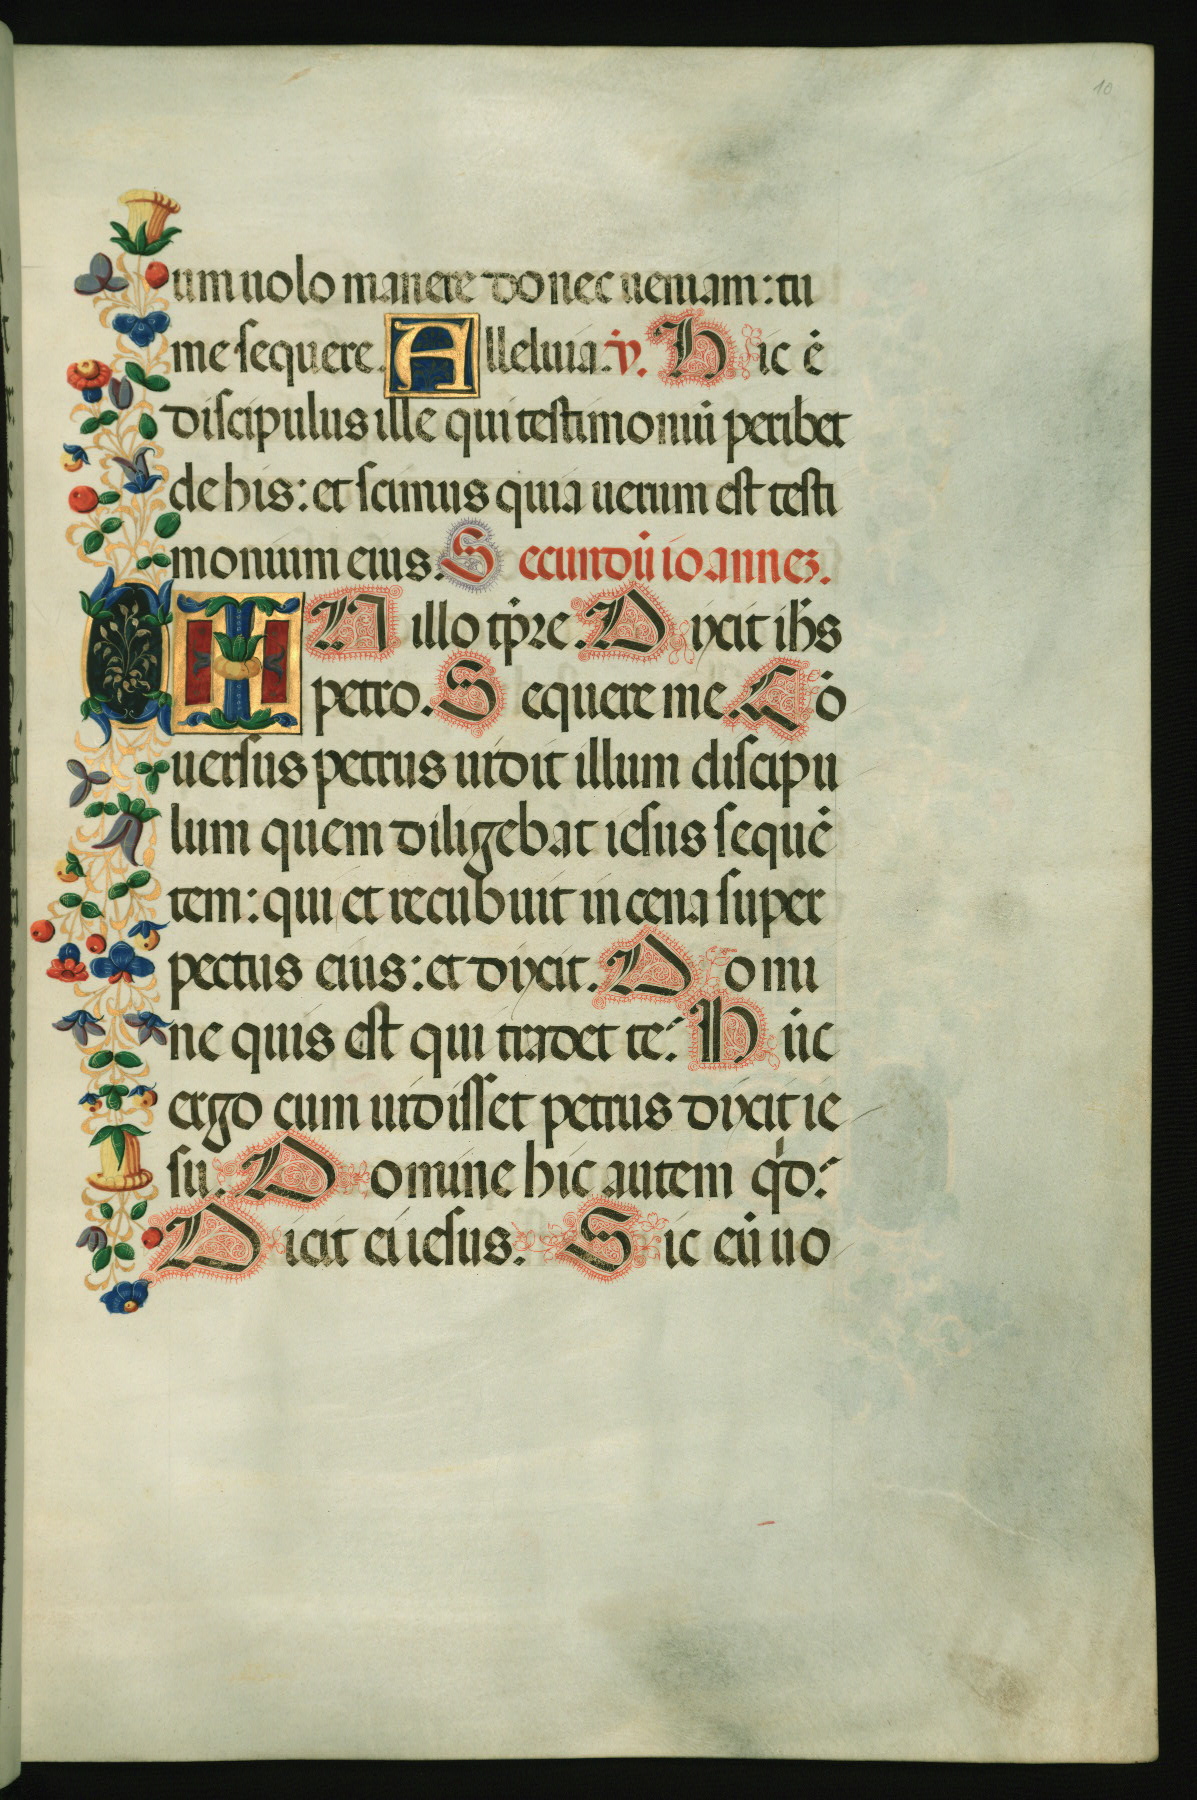 10
um uolo manere donec ueniam: tu
me sequere. Alleluia. ℣. Hic ē
discipulus ille qui testimoniū peribet
de his: et scimus quia uerum est testi
monium eius. Secundū ioannez.
IN illo tp̄re. Dixit ih̄s
petro. Sequere me. Cō
uersus petrus uidit illum discipu
lum quem diligebat iesus sequē
tem: qui et recubuit in cena super
pectus eius: et dixit. Domi
ne quis est qui tradet te? Hūc
ergo cum uidisset petrus dixit ie
su. Domine hic autem qd?
Dicit ei iesus. Sic eū uo